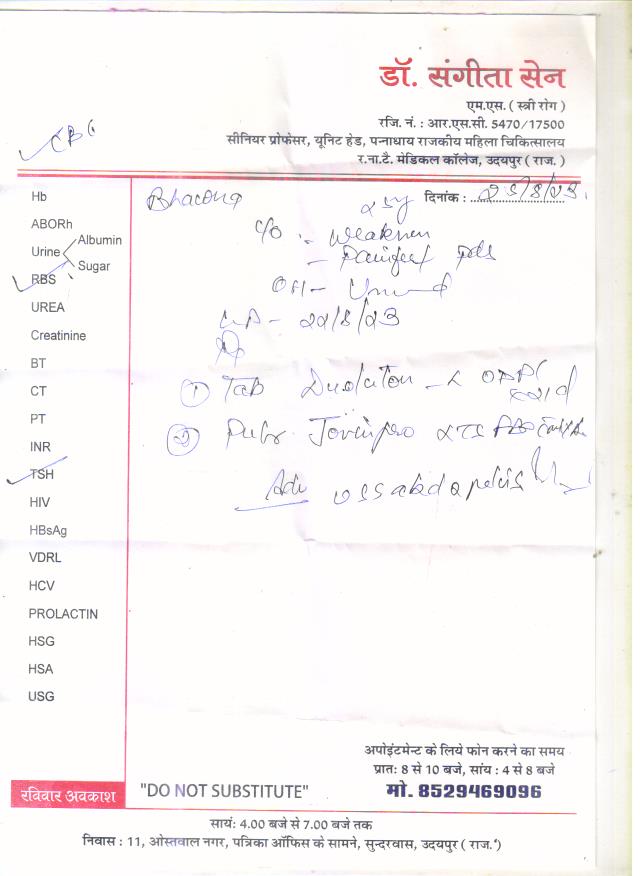 डॉ. संगीता सेन
एम.एस. ( स्त्री रोग )
रजि. नं. : आर.एस.सी. 5470/17500
सीनियर प्रोफेसर, यूनिट हेड, पन्नाधाय राजकीय महिला चिकित्सालय
र.ना.टै. मेडिकल कॉलेज, उदयपुर ( राज. )
CBC
Hb
ABORh
Urine Albumin
Sugar
RBS
UREA
Creatinine
BT
CT
PT
INR
TSH
HIV
HBsAg
VDRL
HCV
PROLACTIN
HSG
HSA
USG
रविवार अवकाश
दिनांक : 25/8/23
Bhacong
25y
C/O :- Weaknen
- Painful
OH - Unmd
LMP - 22/8/23
Rp
① Tab
②
Adv
"DO NOT SUBSTITUTE"
अपोइंटमेन्ट के लिये फोन करने का समय
प्रातः 8 से 10 बजे, सांय : 4 से 8 बजे
मो. 8529469096
सायं: 4.00 बजे से 7.00 बजे तक
निवास : 11, ओस्तवाल नगर, पत्रिका ऑफिस के सामने, सुन्दरवास, उदयपुर ( राज. )